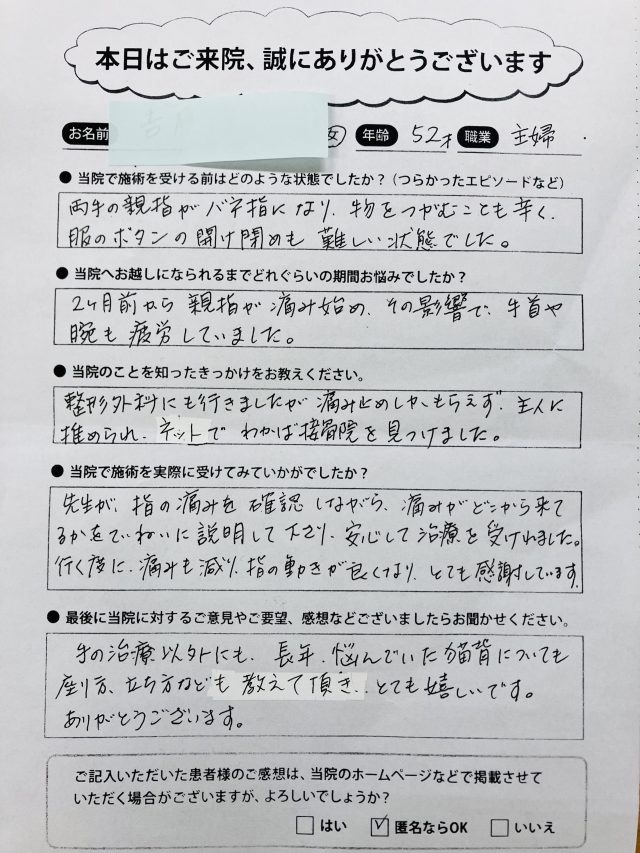 本日はご来院、誠にありがとうございます
お名前 女 年齢 52才 職業 主婦
● 当院で施術を受ける前はどのような状態でしたか？（つらかったエピソードなど）
両手の親指がバネ指になり、物をつかむことも辛く、
服のボタンの開け閉めも難しい状態でした。
● 当院へお越しになられるまでどれぐらいの期間お悩みでしたか？
2ヶ月前から親指が痛み始め、その影響で、手首や
腕も疲労していました。
● 当院のことを知ったきっかけをお教えください。
整形外科にも行きましたが痛み止めしかもらえず、主人に
推められ、ネットでわかば接骨院を見つけました。
● 当院で施術を実際に受けてみていかがでしたか？
先生が、指の痛みを確認しながら、痛みがどこから来て
るかをていねいに説明して下さり、安心して治療を受けれました。
行く度に、痛みも減り、指の動きが良くなり、とても感謝しています。
● 最後に当院に対するご意見やご要望、感想などございましたらお聞かせください。
手の治療以外にも、長年、悩んでいた猫背についても
座り方、立ち方なども教えて頂き、とても嬉しいです。
ありがとうございます。
ご記入いただいた患者様のご感想は、当院のホームページなどで掲載させて
いただく場合がございますが、よろしいでしょうか？
□ はい ☑ 匿名ならOK □ いいえ